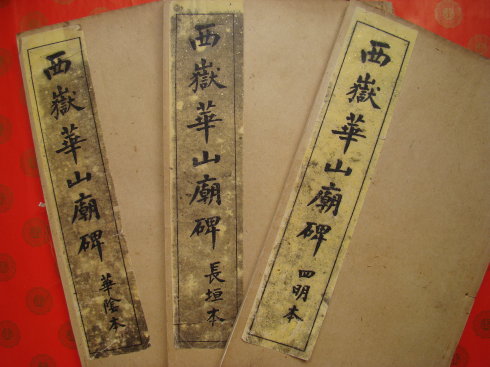 西嶽華山廟碑
華陰本
西嶽華山廟碑
長垣本
西嶽華山廟碑
四明本